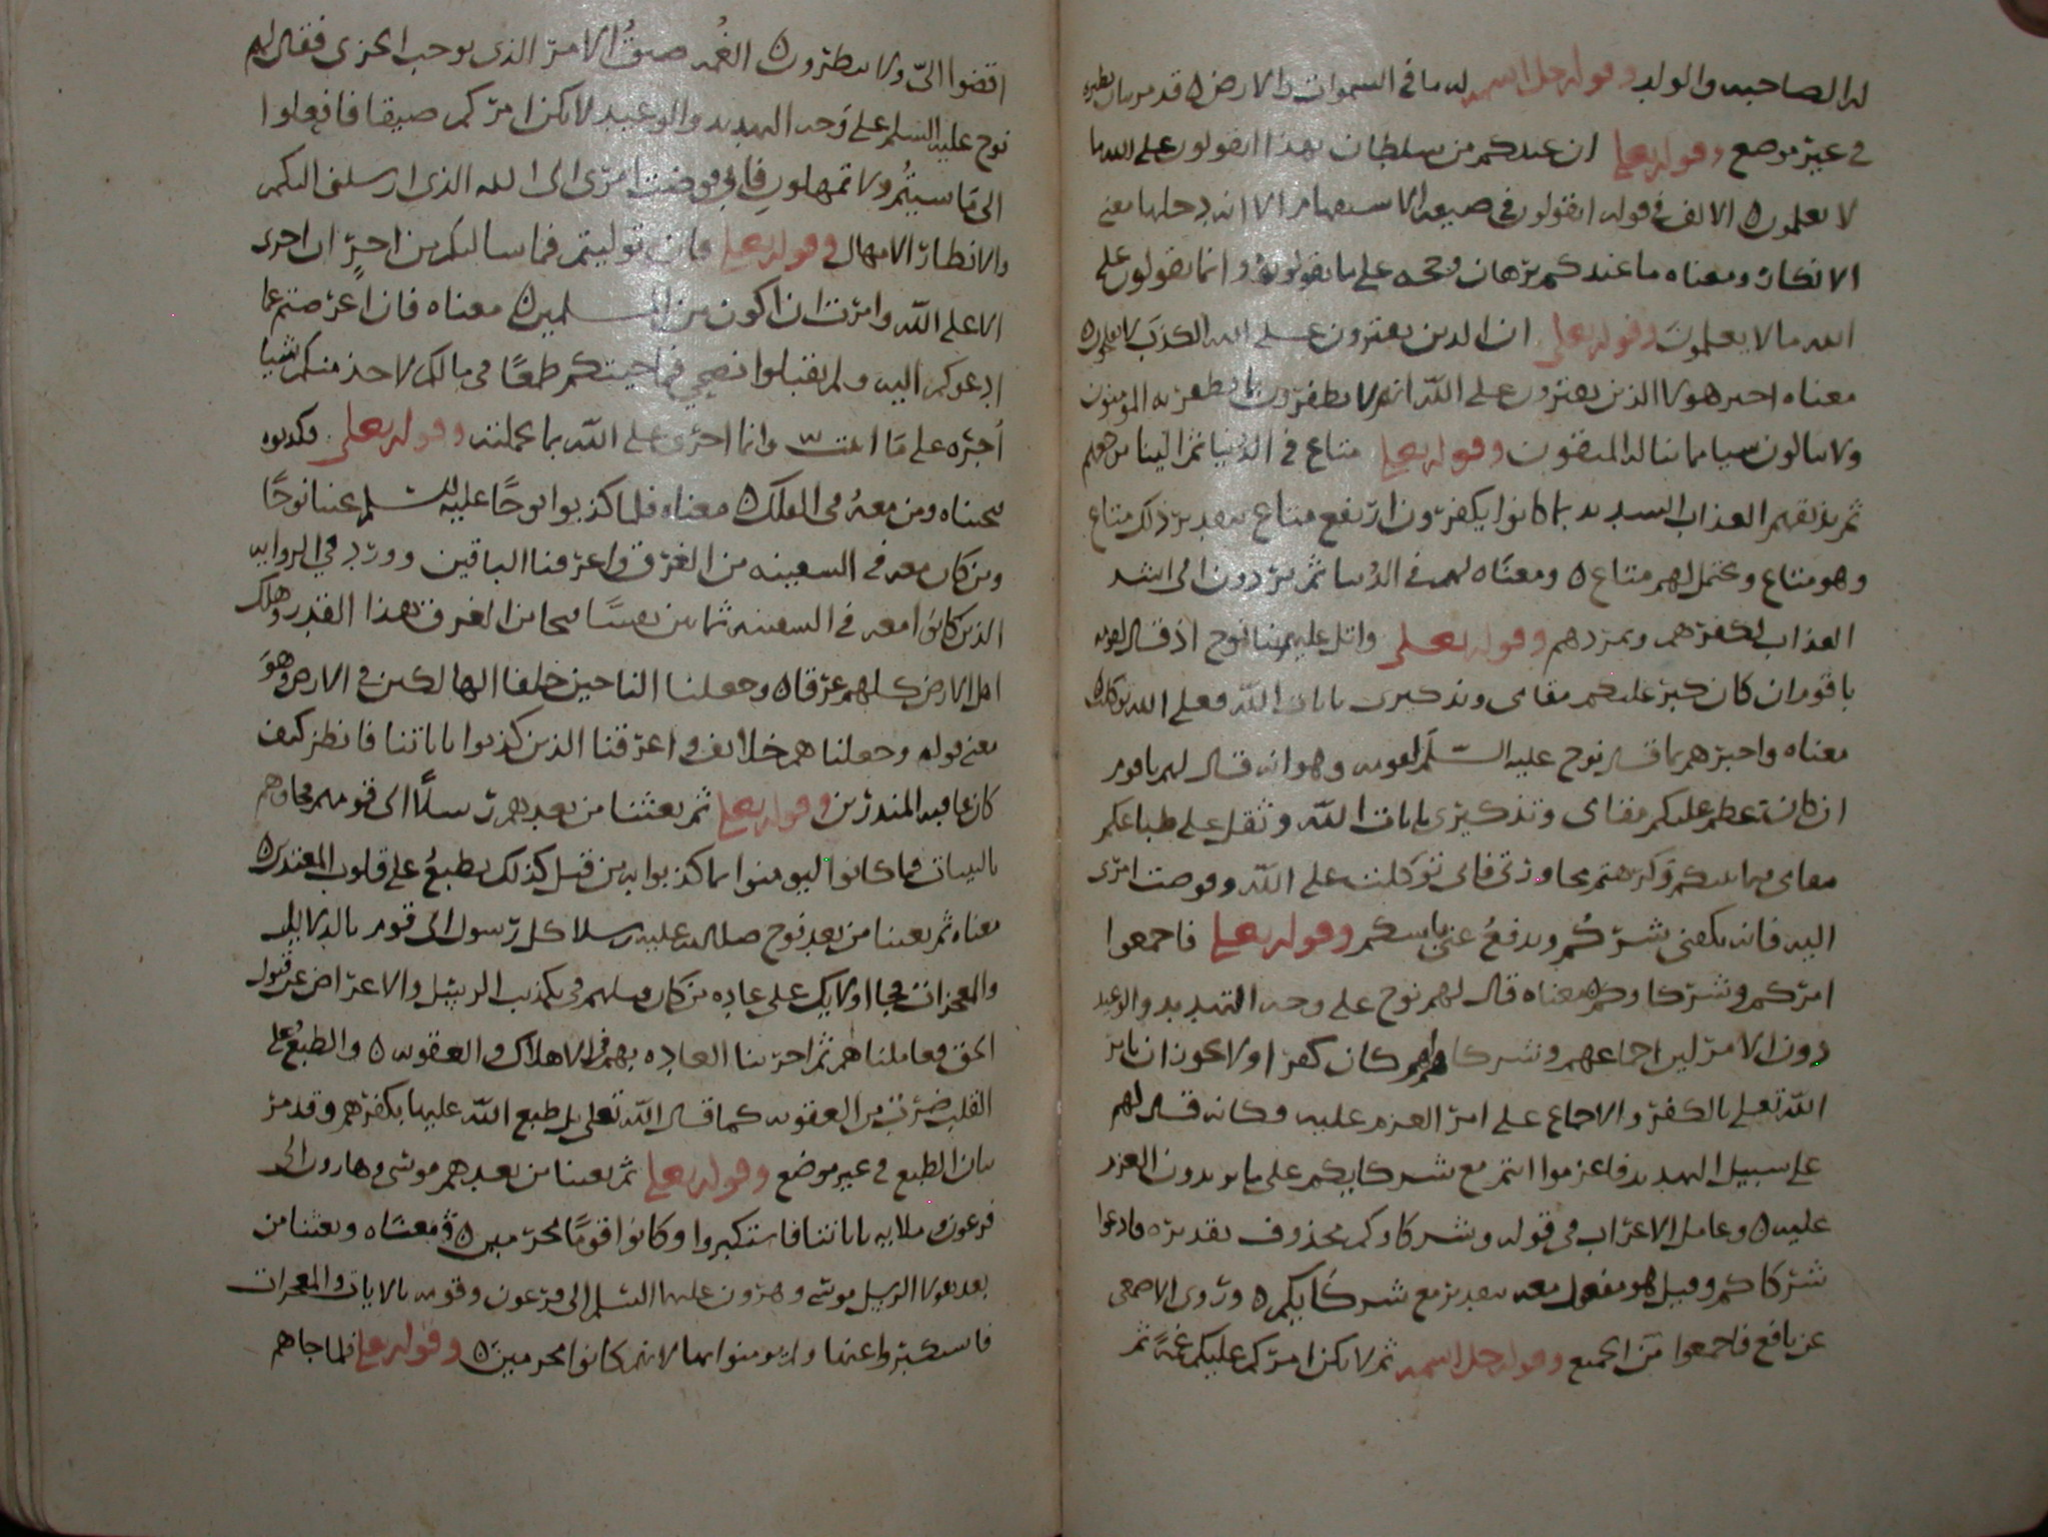 له الصاحبه والولد وقوله جل اسمه له ما في السموات والارض ه قد مر بيان نظيره
في غير موضع وقوله تعلى ان عندكم من سلطان بهذا اتقولون على الله ما
لا تعلمون ه الالف في قوله اتقولون في صيغه الاستفهام الا انه دخلها معنى
الانكار ومعناه ما عندكم برهان وحجه على ما تقولونه وانما تقولون على
الله ما لا تعلمون وقوله تعلى ان الذين يفترون على الله الكذب لا يفلحون ه
معناه اخبر هولا الذين يفترون على الله انهم لا يظفرون بما يظفر به المومنون
ولا ينالون شيا مما يناله المتقون وقوله تعلى متاع في الدنيا ثم الينا مرجعهم
ثم نذيقهم العذاب الشديد بما كانوا يكفرون ارتفع متاع بتقدير ذلك متاع
وهو متاع ويحتمل لهم متاع ه ومعناه لهم في الدنيا ثم يردون الى اشد
العذاب لكفرهم وتمردهم وقوله تعلى واتل عليهم نبا نوح اذ قال لقومه
يا قوم ان كان كبر عليكم مقامى وتذكيرى بايات الله فعلى الله توكلت ه
معناه واخبرهم بما قال نوح عليه السلم لقومه وهو انه قال لهم يا قوم
ان كان عظم عليكم مقامى وتذكيرى بايات الله وثقل على طباعكم
مقامى فيما بينكم وكرهتم مجاورتى فانى توكلت على الله وفوضت امرى
اليه فانه يكفنى شركم ويدفع عنى باسكم وقوله تعلى فاجمعوا
امركم وشركاوكم ه معناه قال لهم نوح على وجه التهديد والوعيد
دون الامر لان اجماعهم وشركاوهم كان كفرا ولا يجوز ان يامر
الله تعلى بالكفر والاجماع على امر العزم عليه وكانه قال لهم
على سبيل التهديد فاعزموا انتم مع شركايكم على ما تريدون العزم
عليه ه وعامل الاعراب في قوله وشركاوكم محذوف تقديره وادعوا
شركاكم وقيل هو مفعول معه بتقدير مع شركايكم ه وروى الاصمعى
عن نافع فاجمعوا من الجمع وقوله جل اسمه ثم لا يكن امركم عليكم غمة ثم
اقضوا الىّ ولا تنظرون ه الغمه ضيق الامر الذى يوجب الحزن فقال لهم
نوح عليه السلم على وجه التهديد والوعيد لا يكن امركم ضيقا فافعلوا
الى ما شيتم ولا تمهلون فانى فوضت امرى الى الله الذى ارسلنى اليكم
والانظار الامهال وقوله تعلى فان توليتم فما سالتكم من اجر ان اجرى
الا على الله وامرت ان اكون من المسلمين ه معناه فان اعرضتم عما
ادعوكم اليه ولم تقبلوا نصحي فما جيتكم طمعا في مالكم لاخذ منكم شيا
اجره على ما اتيت وانما اجرى على الله بما عملته وقوله تعلى فكذبوه
فنجيناه ومن معه في الفلك ه معناه فلما كذبوا نوحا عليه السلم نجينا نوحا
ومن كان معه في السفينه من الغرق واغرقنا الباقين وورد في الروايه
الذين كانوا معه في السفينه ثمانين نفسا نجا من الغرق هذا القدر وهلك
اهل الارض كلهم غرقا ه وجعلنا الناجين خلفا الهالكين في الارض وهو
معنى قوله وجعلناهم خلائف واغرقنا الذين كذبوا باياتنا فانظر كيف
كان عاقبه المنذرين وقوله تعلى ثم بعثنا من بعدهم رسلا الى قومهم فجاوهم
بالبينات فما كانوا ليومنوا بما كذبوا به من قبل كذلك نطبع على قلوب المعتدين ه
معناه ثم بعثنا من بعد نوح صلى الله عليه رسلا كل رسول الى قومه بالدلايل
والمعجزات فجا اولايك على عاده من كان قبلهم في تكذيب الرسل والاعراض عن قبول
الحق فعاملناهم ثم اجرينا العاده بهم في الاهلاك والعقوبه ه والطبع على
القلب ضرب من العقوبه كما قال الله تعلى بل طبع الله عليها بكفرهم وقد مر
بيان الطبع في غير موضع وقوله تعلى ثم بعثنا من بعدهم موسى وهارون الى
فرعون وملايه باياتنا فاستكبروا وكانوا قوما مجرمين ه ومعناه وبعثنا من
بعد هولا الرسل موسى وهرون عليهما السلم الى فرعون وقومه بالايات والمعجزات
فاستكبروا عنها ولم يومنوا بها لانهم كانوا مجرمين ه وقوله تعلى فلما جاهم